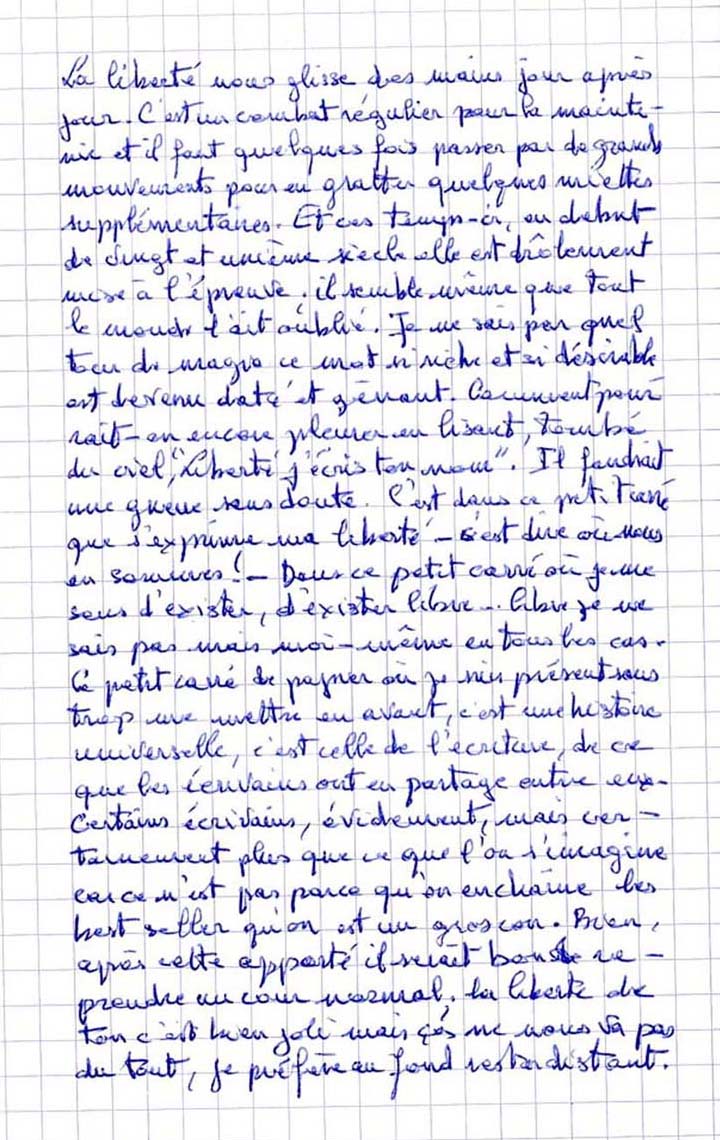 La liberté nous glisse des mains jour après
jour. C'est un combat régulier pour la mainte-
nir et il faut quelques fois passer par de grands
mouvements pour en gratter quelques miettes
supplémentaires. Et ces temps-ci, en debut
de vingt et unième siècle elle est drôlement
mise à l'épreuve. il semble même que tout
le monde l'ait oublié. Je ne sais par quel
tour de magie ce mot si riche et si désirable
est devenu daté et gênant. Comment pour
rait-on encore pleurer en lisant, tombé
du ciel, "Liberté j'écris ton nom". Il faudrait
une guerre sans doute. C'est dans ce petit carré
que s'exprime ma liberté - c'est dire où nous
en sommes! - Dans ce petit carré où je me
sens d'exister, d'exister libre... libre je ne
sais pas mais moi-même en tous les cas.
Ce petit carré de papier où je suis présent sans
trop me mettre en avant, c'est une histoire
universelle, c'est celle de l'écriture, de ce
que les écrivains ont en partage entre eux.
Certains écrivains, évidemment, mais cer-
tainement plus que ce que l'on s'imagine
car ce n'est pas parce qu'on enchaîne les
best seller qu'on est un gros con. Bien,
après cette apporté il serait bon de re-
prendre un cour normal. la liberté de
ton c'est bien joli mais ça ne nous va pas
du tout, je préfère au fond rester distant.